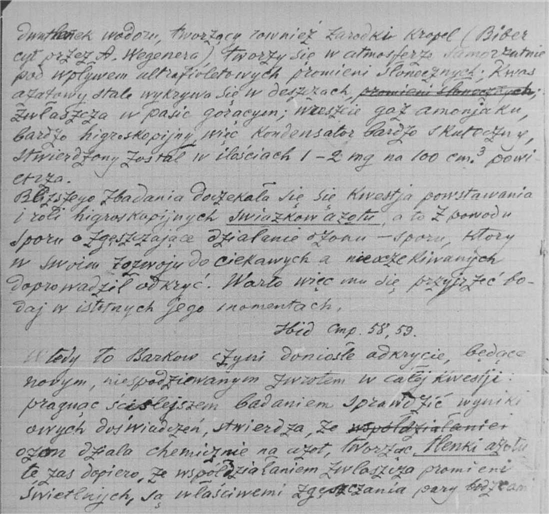 dwutlenek wodoru, tworzący również zarodki kropel (Biber
cyt przez A. Wegenera) tworzy się w atmosferze samorzutnie
pod wpływem ultrafioletowych promieni słonecznych; kwas
azotawy stale wykrywa się w deszczach, promieni słonecznych,
zwłaszcza w pasie gorącym; wreszie gaz amonjaku,
bardzo higroskopijny, więc kondensator bardzo skuteczny,
stwierdzony został w ilościach 1–2 mg na 100 cm.³ powi
etrza.
Bliższego zbadania doczekała się się kwestja powstawania
i roli higroskopijnych związków azotu, a to z powodu
sporu o zgęszczające działanie ozonu – sporu, który
w swoim rozwoju do ciekawych a nieoczekiwanych
doprowadził odkryć. Warto więc mu się przyjrzeć bo-
daj w istotnych jego momentach.
Ibid стр. 58, 59.
Wtedy to Barkow czyni doniosłe odkrycie, będące
nowym, niespodziewanym zwrotem w całej kwestji:
pragnąc ściślejszem badaniem sprawdzić wyniki
owych doświadczeń, stwierdza, że współdziałaniei
ozon działa chemicznie na azot, tworząc tlenki azotu
te zaś dopiero, ze współdziałaniem zwłaszcza promieni
świetlnych, są właściwemi zgęszczania pary bodźcami